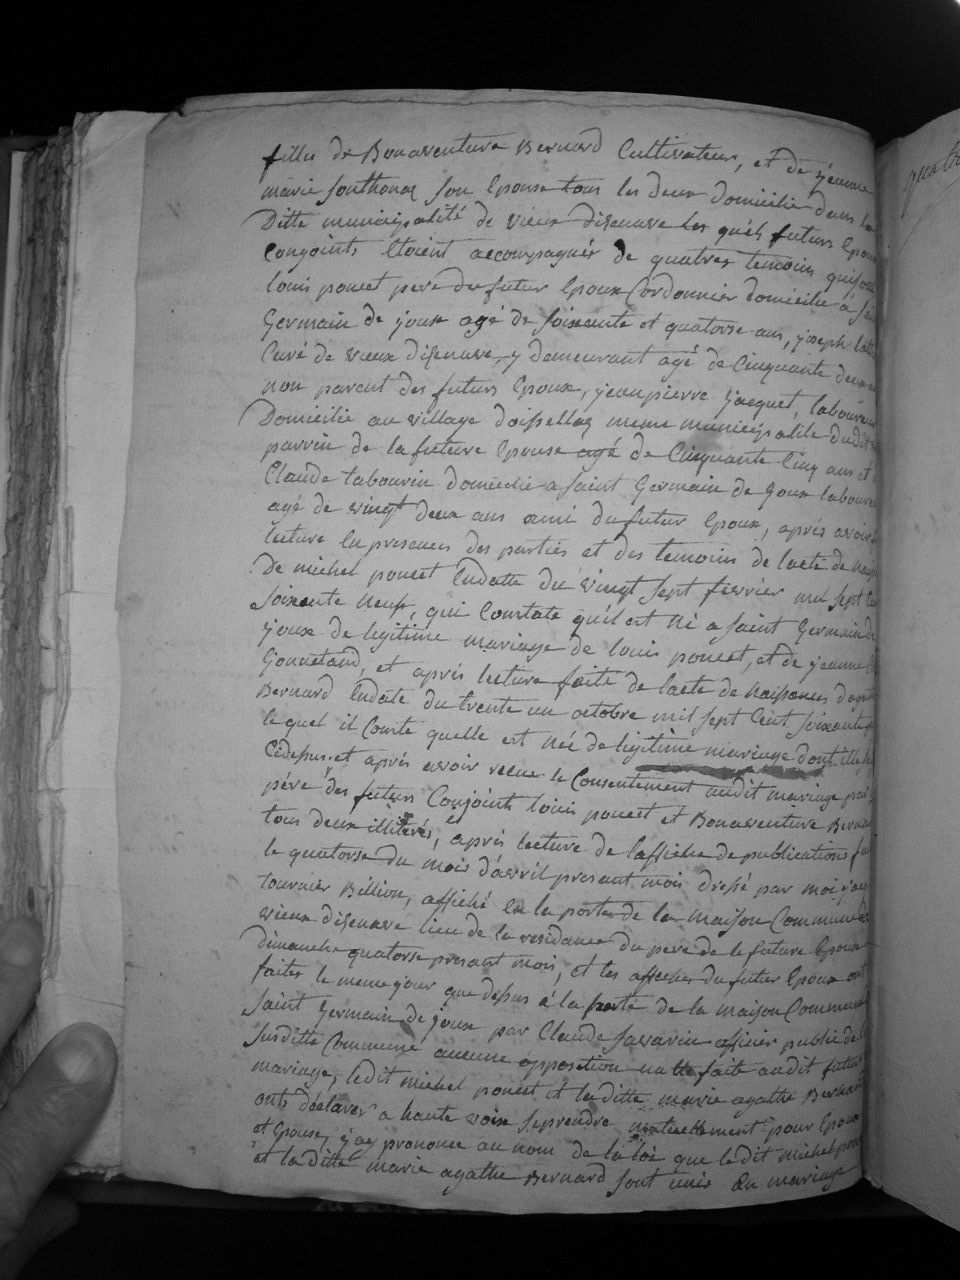 fille de Bonaventure Bernard Cultivateur, et de jeanne
marie sonthonax son Epouse tous les deux domicilié dans la
Ditte municipalité de vieux disenave les quels futurs Epoux
Conjoints Etoient accompagnés de quatres temoins
louis poncet pere du futur Epoux Cordonnier domicilié à
Germain de joux agé de soixante et quatorse ans, joseph
Curé de vieux disenave, y demeurant agé de Cinquante deux
non parent des futurs Epoux, jean pierre jacquet, laboureur
Domicilié au village doissellaz meme municipalité dudit
parrin de la future Epouse agé de Cinquante Cinq ans et
Claude tabourin domicilié a saint Germain de Joux laboureur
agé de vingt deux ans ami du futur Epoux, aprés avoir
lecture En presences des parties et des temoins de lacte de
De michel poncet Endatte du vingt sept fevrier mil sept
soixante neuf, qui Constate quil est Né a saint Germain de
joux de legitime mariage de louis poncet, et de jeanne
et aprés lecture faite de lacte de Naissances
Bernard Endate du trente un octobre mil sept Cent soixante
le quel il Conste quelle est Née de legitime mariage dont
Cidessus, et aprés avoir recue le Consentement audit mariage par
péré des futurs Conjoints louis poncet et Bonaventure Bernard
tous deux illiterés, et aprés lecture de laffiche de publications
le quatorse du mois d'avril presant mois dressé par moi
tournier Billion, affiché En la porte de la maison Commune de
vieux disenave lieu de la residance du pere de la future Epouse
dimanche quatorse presant mois, et les affiches du futur Epoux ont
faites le meme jour que dessus a la porte de la maison Commune
saint Germain de joux par Claude savarin officier public de
susditte Commune aucune opposition na été faite audit futur
mariage, ledit michel poncet et la ditte marie agathe Bernard
onts déclarer a haute voix se prendre mutuellement pour Epoux
et Epouse, j'ay prononce au nom de la loi que ledit michel
et la ditte marie agathe Bernard sont unis En mariage